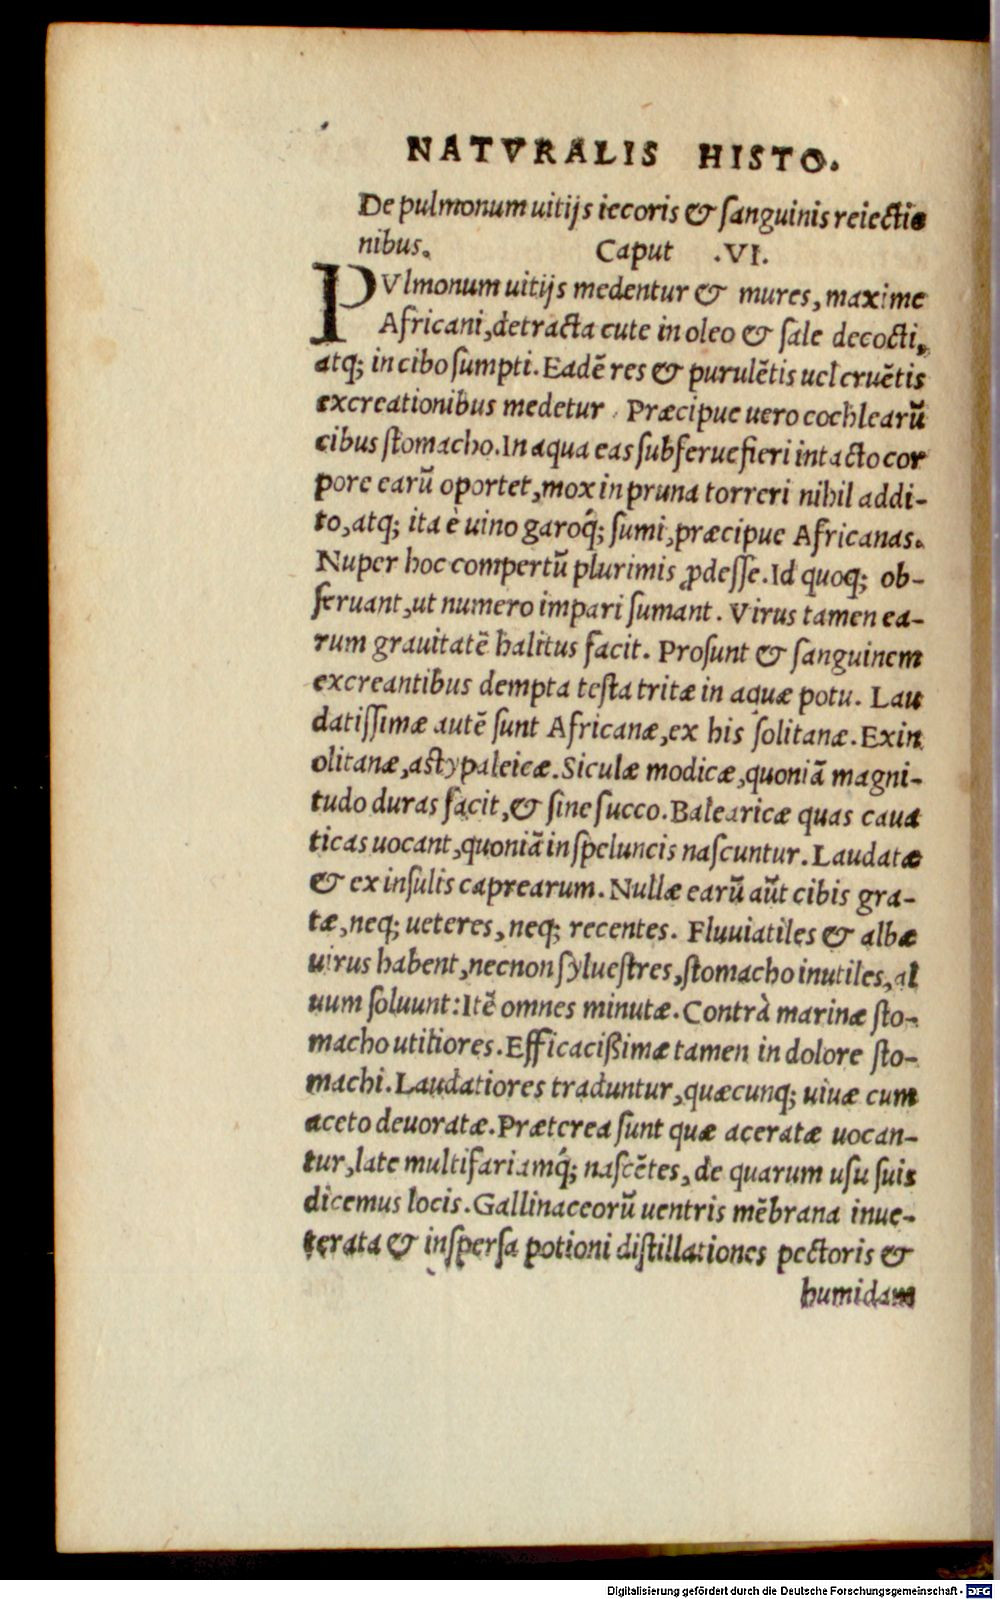 NATVRALIS HISTO.
De pulmonum uitijs iecoris & ſanguinis reiectio
nibus. Caput .VI.
PVlmonum uitijs medentur & mures, maxime
Africani, detracta cute in oleo & ſale decocti,
atq; in cibo ſumpti. Eadē res & purulētis uel cruētis
excreationibus medetur. Præcipue uero cochlearū
cibus ſtomacho. In aqua eas ſubferuefieri intacto cor
pore earū oportet, mox in pruna torreri nihil addi-
to, atq; ita è uino garoq́; ſumi, præcipue Africanas.
Nuper hoc compertū plurimis ꝓdeſſe. Id quoq; ob-
ſeruant, ut numero impari ſumant. Virus tamen ea-
rum grauitatē halitus facit. Proſunt & ſanguinem
excreantibus dempta teſta tritæ in aquæ potu. Lau
datiſſimæ autē ſunt Africanæ, ex his ſolitanæ. Exin
olitanæ, aſtypaleicæ. Siculæ modicæ, quoniā magni-
tudo duras facit, & ſine ſucco. Balearicæ quas caua
ticas uocant, quoniā in ſpeluncis naſcuntur. Laudatæ
& ex inſulis caprearum. Nullæ earū aūt cibis gra-
tæ, neq; ueteres, neq; recentes. Fluuiatiles & albæ
uirus habent, necnon ſylueſtres, ſtomacho inutiles, al
uum ſoluunt: Itē omnes minutæ. Contrà marinæ ſto-
macho utiliores. Efficacißimæ tamen in dolore ſto-
machi. Laudatiores traduntur, quæcunq; uiuæ cum
aceto deuoratæ. Prætcrea ſunt quæ aceratæ uocan-
tur, late multifariamq́; naſcētes, de quarum uſu ſuis
dicemus locis. Gallinaceorū uentris mēbrana inue-
terata & inſperſa potioni diſtillationes pectoris &
humidam
Digitalisierung gefördert durch die Deutsche Forschungsgemeinschaft - DFG